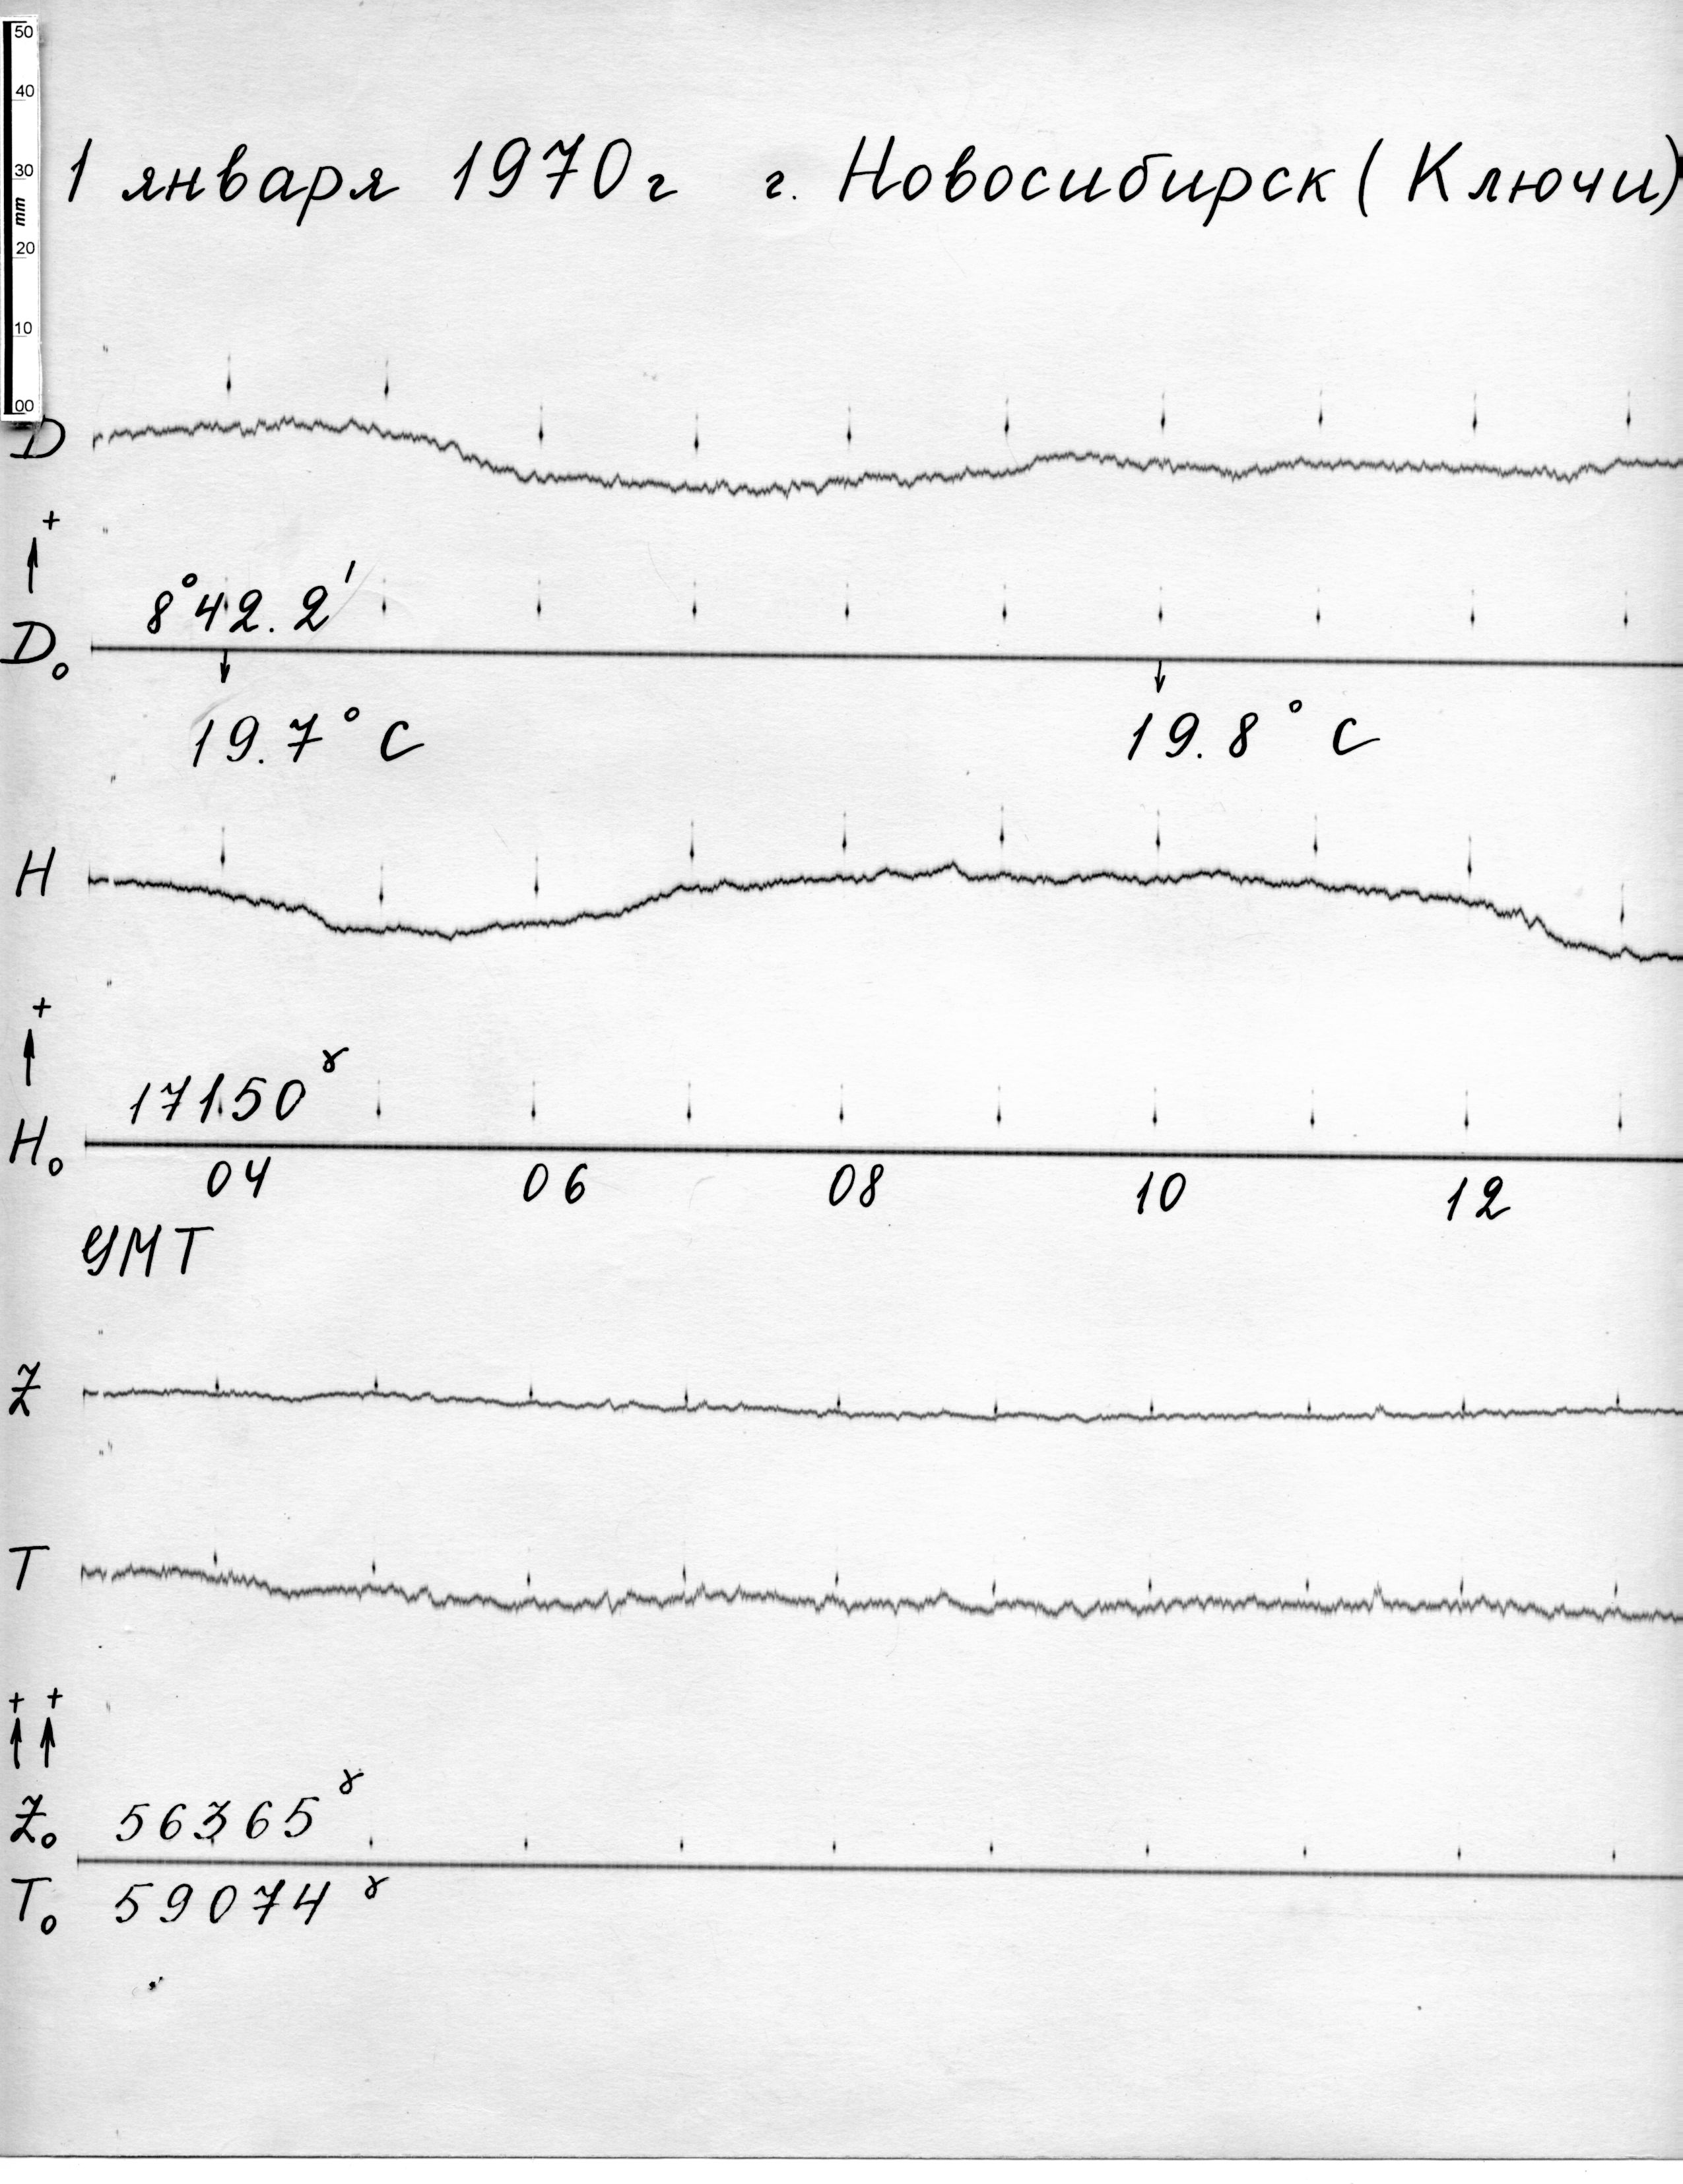 50
40
30
mm
20
10
00
1 января 1970 г г. Новосибирск (Ключи)
D
+
8°42.2'
D₀
19.7° C 19.8° C
H
+
17150 γ
H₀
04 06 08 10 12
УМТ
Z
T
+ +
Z₀ 56365 γ
T₀ 59074 γ